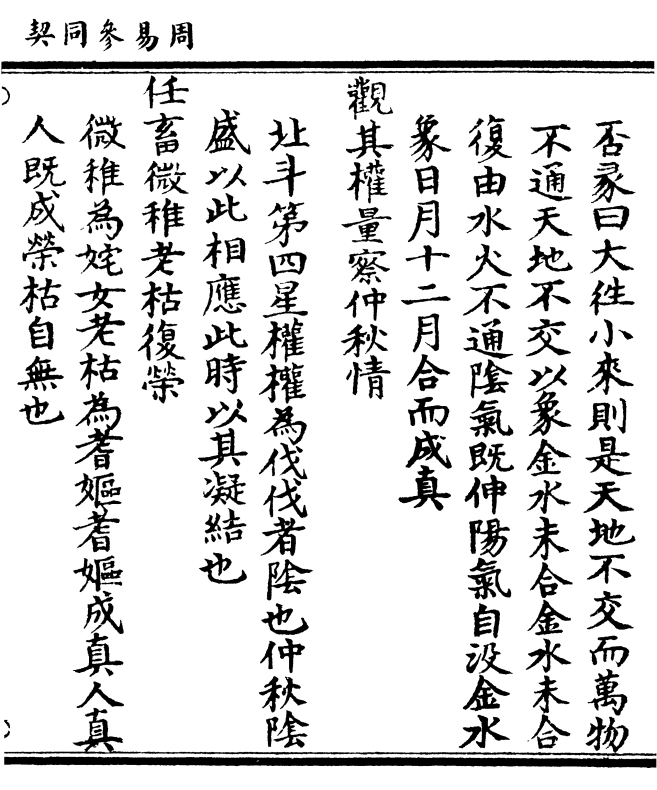 周易參同契
否彖曰大往小來則是天地不交而萬物
不通天地不交以象金水未合金水未合
復由水火不通陰氣既伸陽氣自没金水
象日月十二月合而成真
觀其權量察仲秋情
北斗第四星權權為伐伐者陰也仲秋陰
盛以此相應此時以其凝結也
任畜微稚老枯復榮
微稚為姹女老枯為耆嫗耆嫗成真人真
人既成榮枯自無也